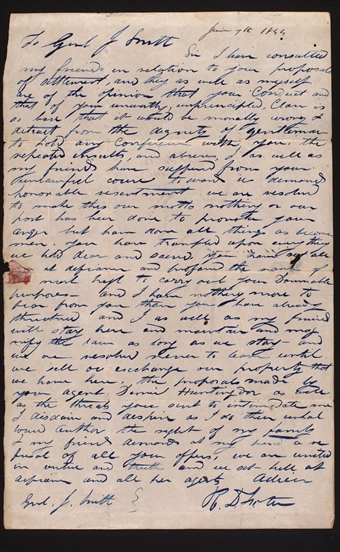 June 7th 1844
To Genl J. Smith
Sir I have consulted
my friends in relation to your proposals
of settlement, and they as well as myself
are of the opinion that your Conduct and
that of your unworthy, unprincipled, Clan is
so base that it would be morally wrong &
detract from the dignity of gentlemen
to hold any Conference with you, the
repeated insults, and abuses, I as well as
my friends have suffered from your
unlawful course towards us demands
honorable resentment we are resolved
to make this our motto nothing on our
part has been done to provoke your
anger but have done all things as become
men, you have trampled upon everything
we hold dear and sacred, you have set all
law at defiance and profaned the name of
the most high to carry out your damnable
purposes and I have nothing more to
fear from you than you have already
threatened and I as well as my friend
will stay here and maintain and mag
nify the law as long as we stay and
we are resolved never to leave until
we sell or exchange our property that
we have here, the proposals made by
your agent Dimic Huntington as well
as the threats you sent to intimidate me
I disdain and despise as I do their unhal
lowed author the right of my family
& my friends demands at my hand a re
fusal of all your offers, we are united
in virtue and truth and we set hell at
defiance and all her agents Adieu
Genl. J. Smith } R. D. Foster